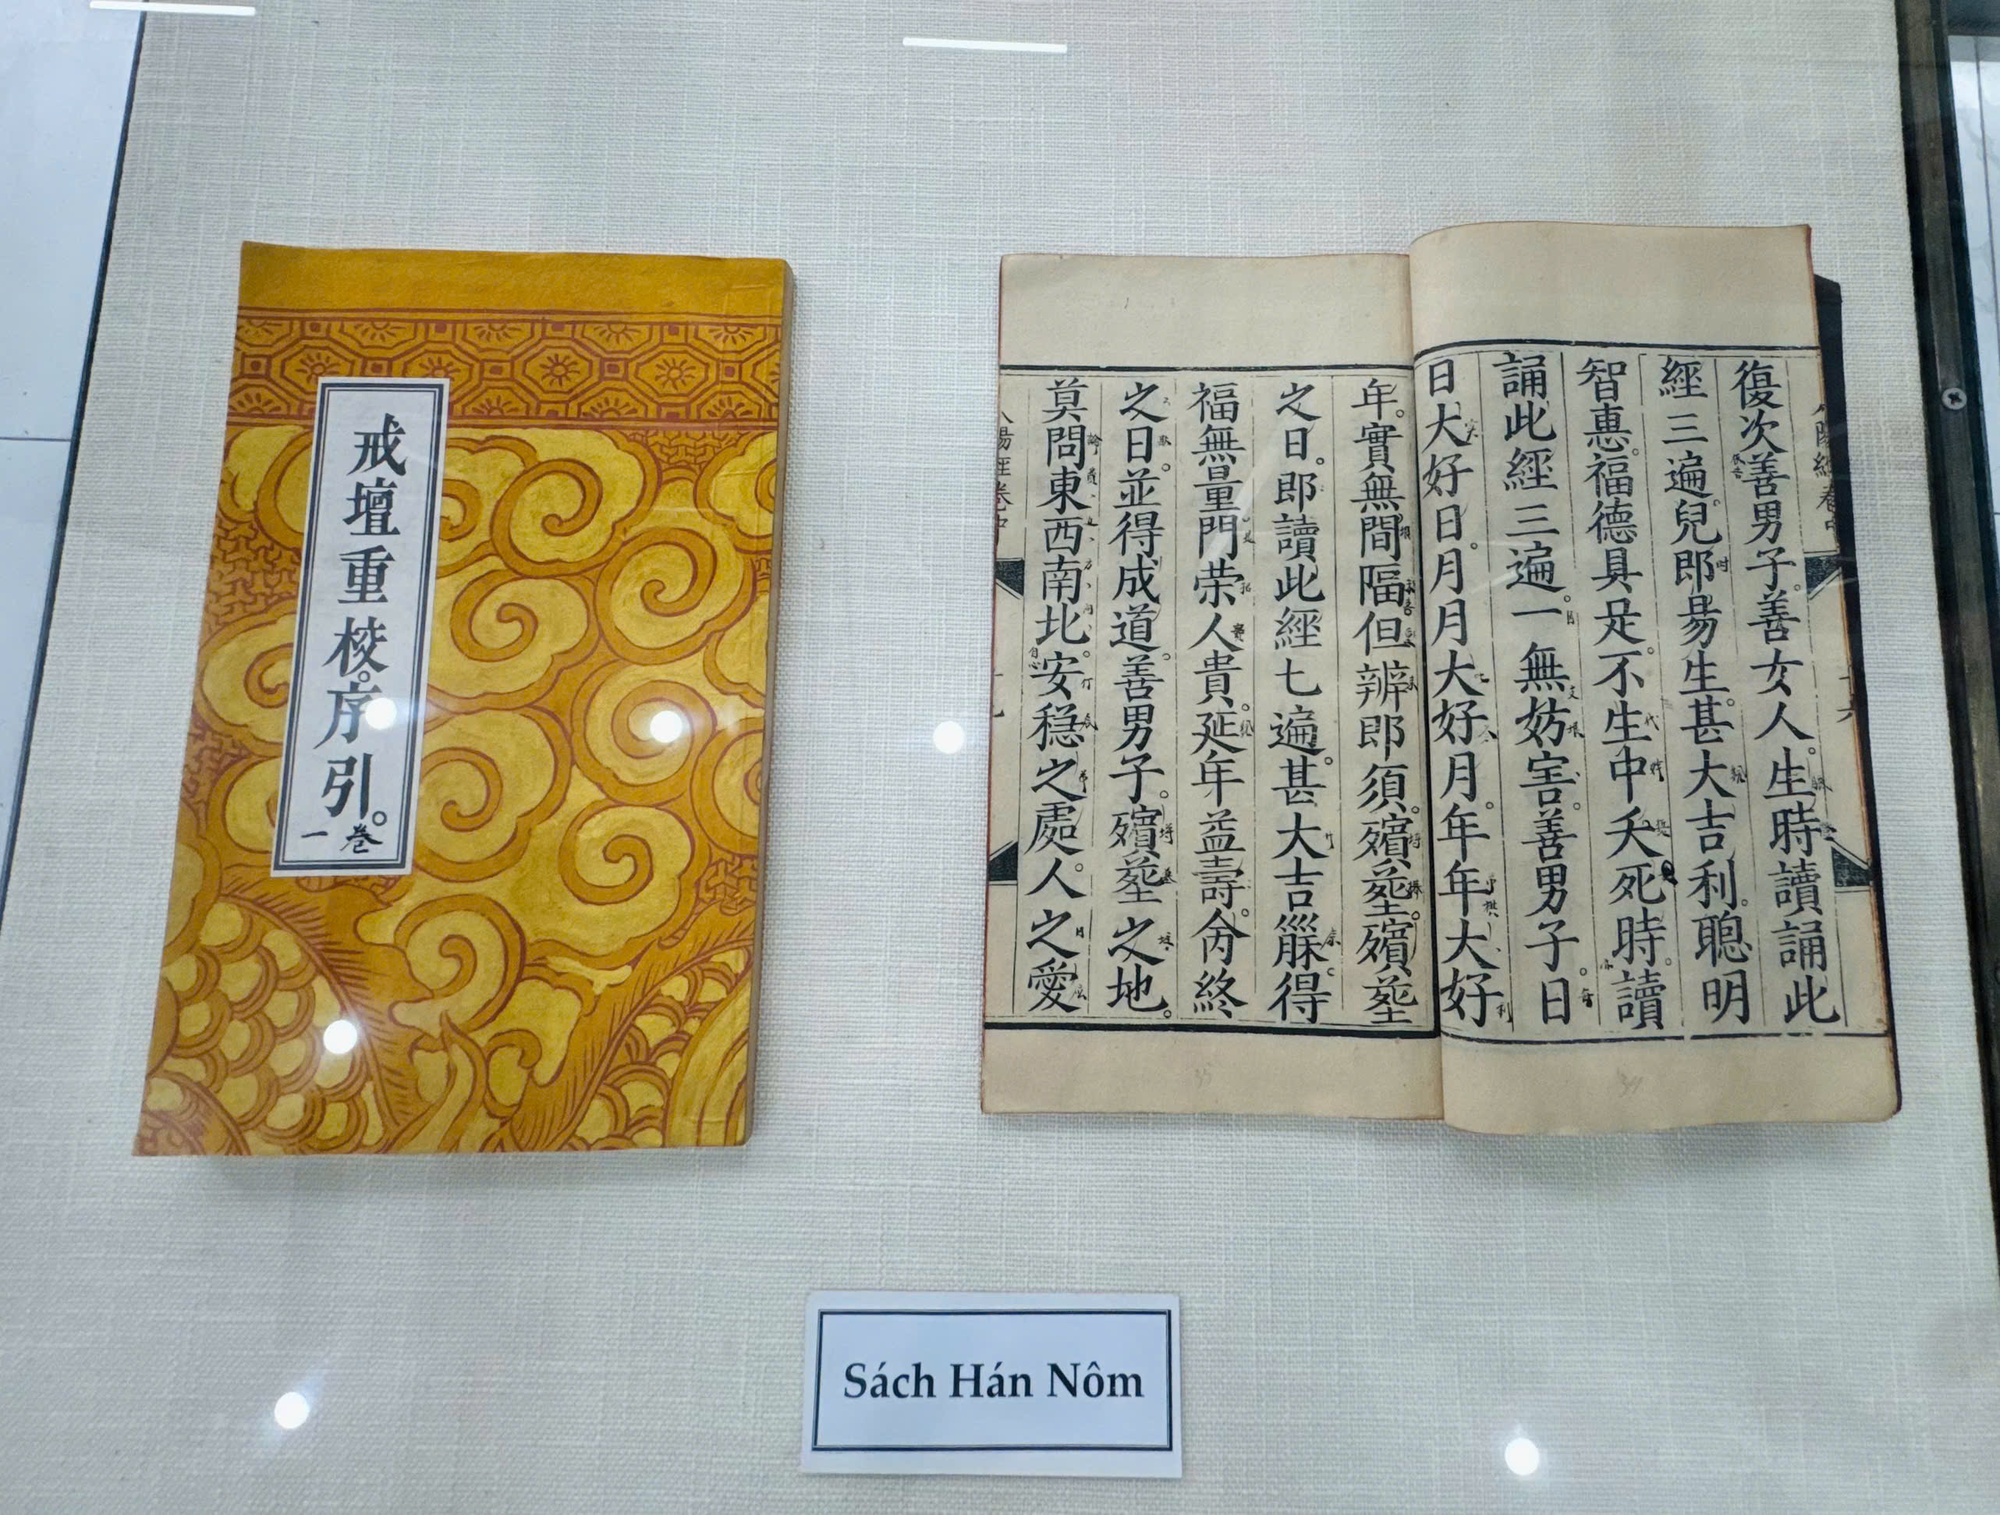 戒壇重校。序引。
卷一
復次善男子。善女人。生時讀誦此
經三遍。兒即易生。甚大吉利。聰明
智惠。福德具足。不生中夭死時。讀
誦此經三遍。一無妨害。善男子。日
日大好日。月月大好月。年年大好
年。實無間隔但辨即須。殯葬。殯葬
之日。即讀此經七遍。甚大吉
得
福無量門荣人貴。延年益壽。命終
之日。並得成道。善男子。殯葬之地。
莫問東西南北。安穩之處。人之愛
Sách Hán Nôm